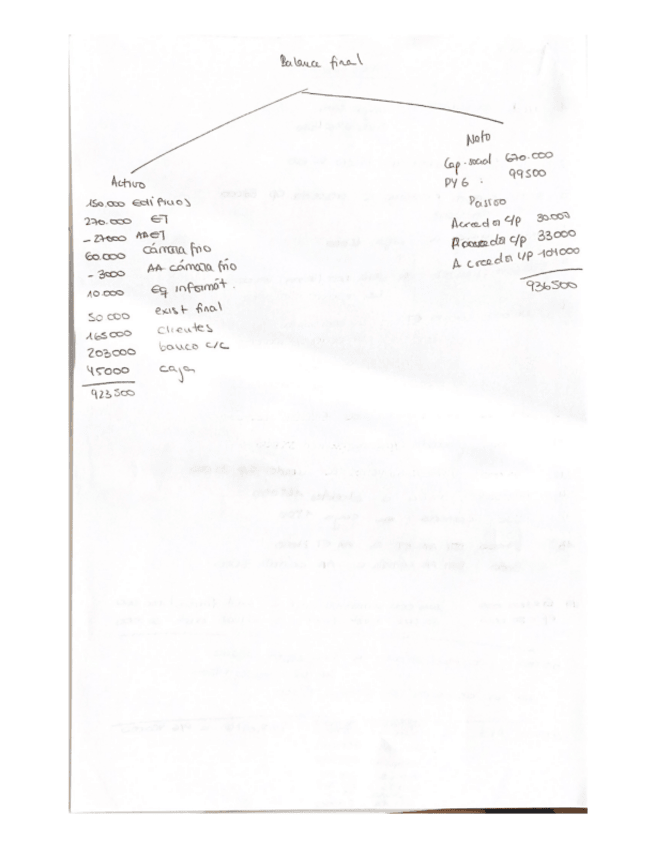 Balance final
Activo
150.000 Edificios
270.000 ET
- 27000 AAET
60.000 cámara frío
- 3000 AA cámara frío
10.000 Eq informát.
50 000 exist final
165000 clientes
203000 banco c/c
45000 caja
923500
Neto
Cap. social 670.000
PYG. 99500
Pasivo
Acreedor c/p 30.000
Acreedor c/p 33000
Acreedor l/p 104000
936500